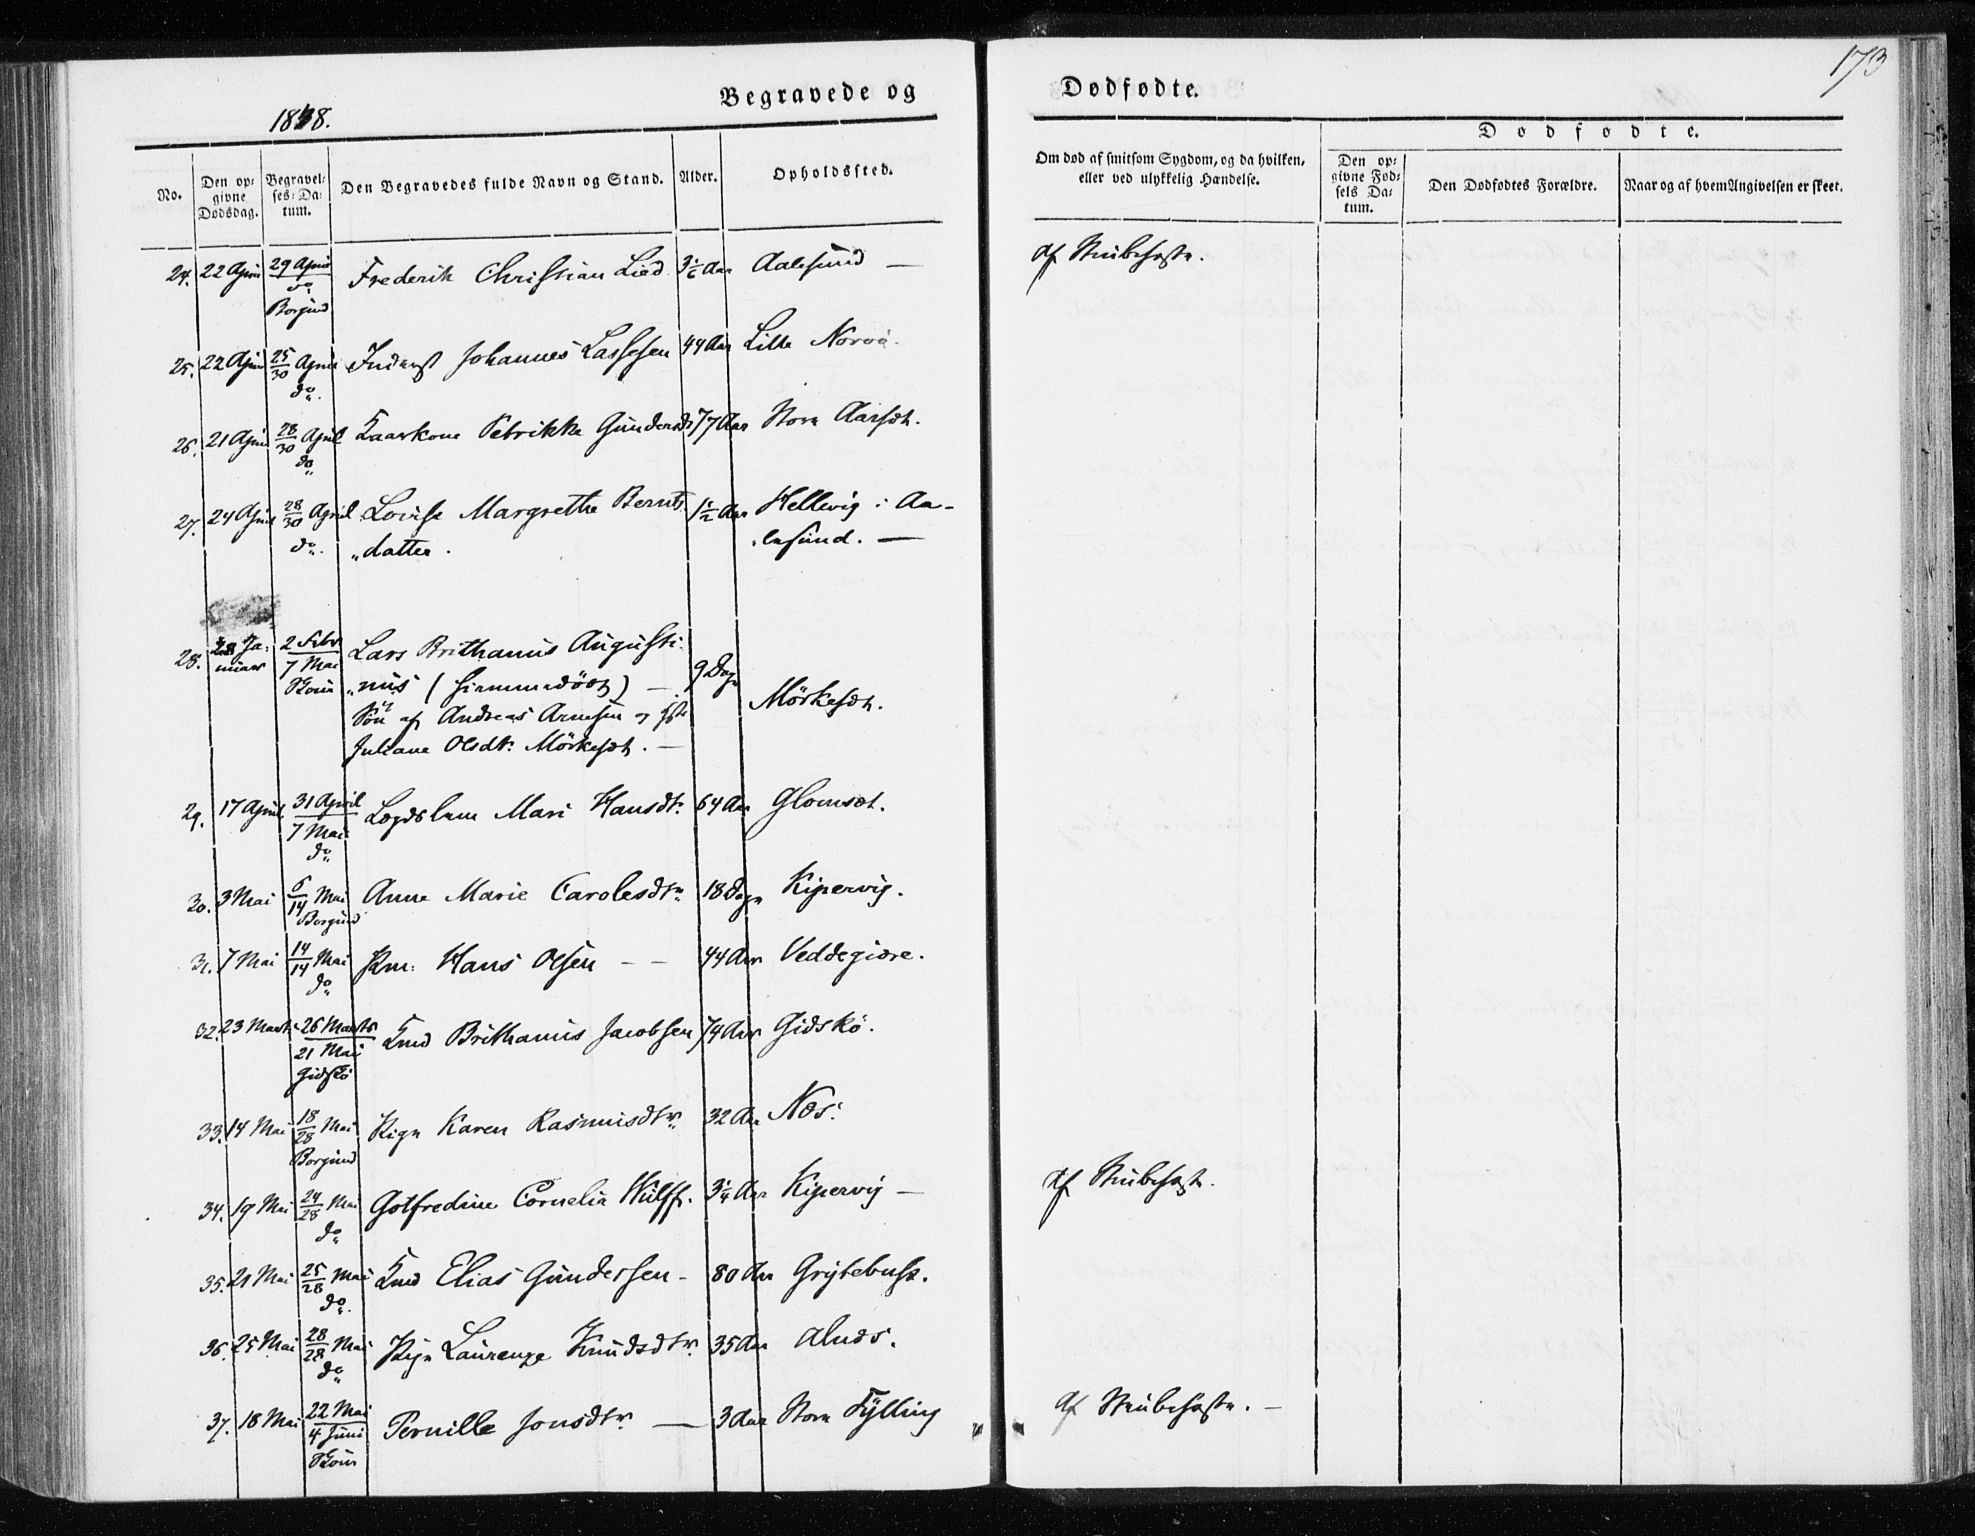 173
Begravede og Dødfødte.
1848.
No.
Den opgivne Dødsdag.
Begravelses-Datum.
Den Begravedes fulde Navn og Stand.
Alder.
Opholdssted.
Om død af smitsom Sygdom, og da hvilken, eller ved ulykkelig Hændelse.
Dødfødte.
Den opgivne Fødsels Datum.
Den Dødfødtes Forældre.
Naar og af hvem Angivelsen er skeet.
24. 22 April 29 April do Borgund Frederik Christian Lied 3 Aar Aalesund —
25. 22 April 25/30 April do. Inderst Johannes Lassesen 44 Aar Lille Norvø.
26. 21 April 28/30 April do Kaarkone Petrikke Gundersdr 77 Aar Store Aarsæt.
27. 24 April 28/30 April do. Lovise Margrethe Bernts 1½ Aar Hellevig i Aa-
datter. lesund. —
28. 28 Januar 2 Febr 7 Mai Lars Brithanus Augusti-
nus (hjemmedøbt) — 9 Dage
Søn af Andreas Arnesen og Mörkesæt.
Juliane Olsdtr Mörkesæt. —
29. 17 April 31 April 7 Mai do Lægdslem Mari Hansdtr 64 Aar Glomsæt.
30. 3 Mai 6/14 Mai Borgund Anne Marie Carolesdtr 18 Dage Kipervig.
31. 7 Mai 14/14 Mai do Hans Olsen — — 44 Aar Veddegjære.
32. 23 Marts 26 Marts 21 Mai Gidskö Brithanus Jacobsen 74 Aar Gidskö.
33. 14 Mai 18/28 Mai Borgund Pige Karen Rasmusdtr 32 Aar Næs.
34. 19 Mai 24/28 Mai do Gotfredine Cornelia Wulff. 3¼ Aar Kipervig —
35. 21 Mai 25/28 Mai do. Elias Gundersen - 80 Aar Grytebust.
36. 25 Mai 28/28 Mai do Pige Laurenze Knudsdtr 35 Aar Alnæs.
37. 18 Mai 22 Mai 4 Juni Pernille Jonsdtr — 3 Aar Store Fylling
af Strubehoste.
af Strubehoste.
af Strubehoste. —